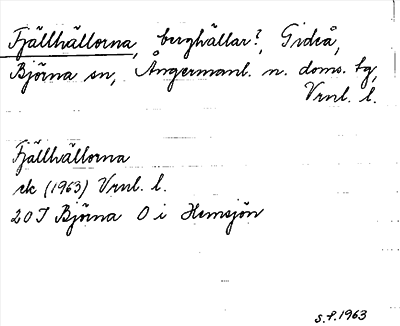 Fjällhällorna, berghällar?, Gideå,
Björna sn, Ångermanl. n. doms. tg,
Vrnl. l.
Fjällhällorna
ek (1963) Vrnl. l.
20 I Björna O i Hemsjön
S.F. 1963